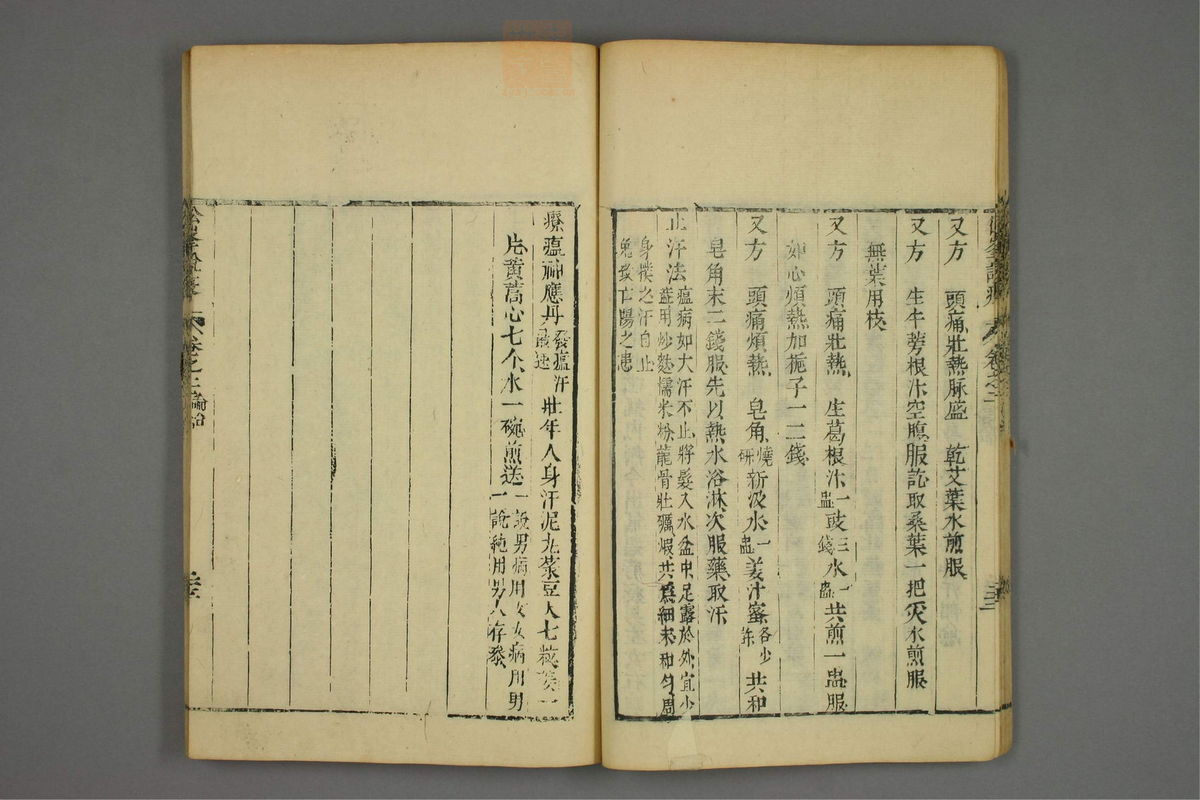 又方 頭痛壯熱脉盛 乾艾葉水煎服
又方 生牛蒡根汁空腹服訖取桑葉一把炙水煎服
無葉用枝
又方 頭痛壯熱 生葛根汁一盅豉三錢水一盅共煎一盅服
如心煩熱加梔子一二錢
又方 頭痛煩熱 皂角燒研新汲水一盅姜汁蜜各少許共和
皂角末二錢服先以熱水浴淋次服藥取汗
止汗法瘟病如大汗不止將髮入水盆中足露於外宜少
蓋用炒麩糯米粉龍骨牡礪煆共爲細末和勻周
身撲之汗自止
免致亡陽之患
療瘟神應丹發瘟汗最速壯年人身汗泥丸菉豆大七粒姜一
片黃蒿心七个水一碗煎送一說男病用女女病用男
一說純用男人存叅
卷之二論治